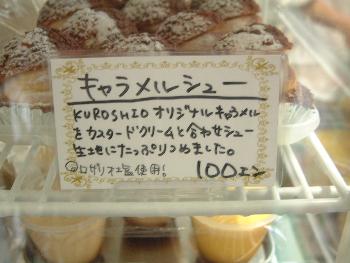 キャラメルシュー
KUROSHIO オリジナルキャラメル
をカスタードクリームと合わせシュー
生地にたっぷりつめました。
ロザリオ塩使用!
100エン